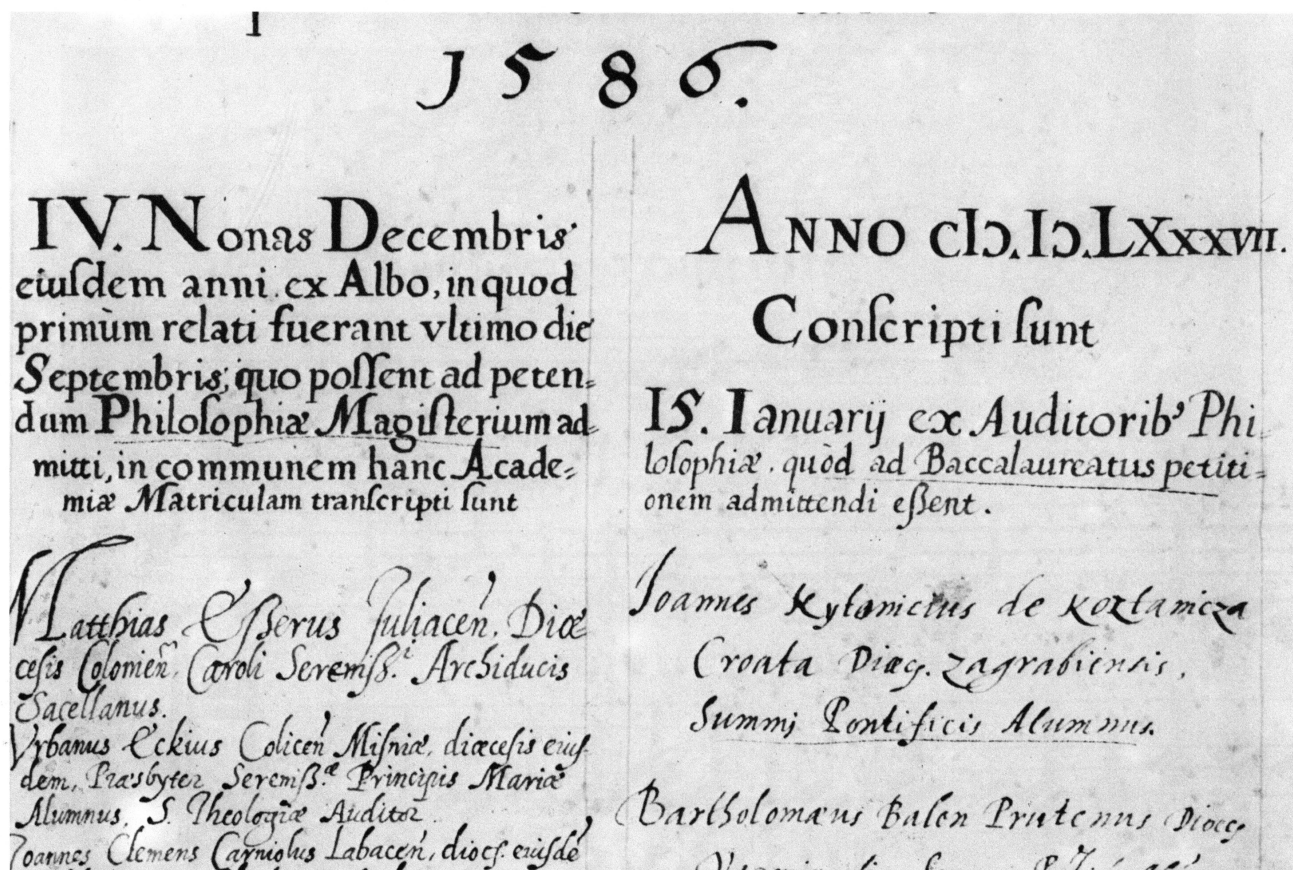 1586.
IV. Nonas Decembris
eiuſdem anni ex Albo, in quod
primùm relati fuerant vltimo die
Septembris; quo poſſent ad peten=
dum Philoſophiæ Magiſterium ad=
mitti, in communem hanc Acade=
miæ Matriculam tranſcripti ſunt
Matthias Eßerus Juliaceñ. Diœ=
cesis Colonieñ. Caroli Sereniß.i Archiducis
Sacellanus.
Vrbanus Eckius Coliceñ Miſniæ, diœcesis eius=
dem, Præsbyter Sereniß.æ Principis Mariæ
Alumnus. S. Theologiæ Auditor
Joannes Clemens Carniolus Labaceñ, diocs. eiusdē
ANNO CIↃ.IↃ.LXXXVII.
Conſcripti ſunt
15. Ianuarij ex Auditorib9 Phi=
loſophiæ, quòd ad Baccalaureatus petiti=
onem admittendi eßent.
Joannes Kytonicius de Koztanicza
Croata Diœc. Zagrabiensis,
Summi Pontificis Alumnus.
Bartholomæus Balen Prutenus Diœc